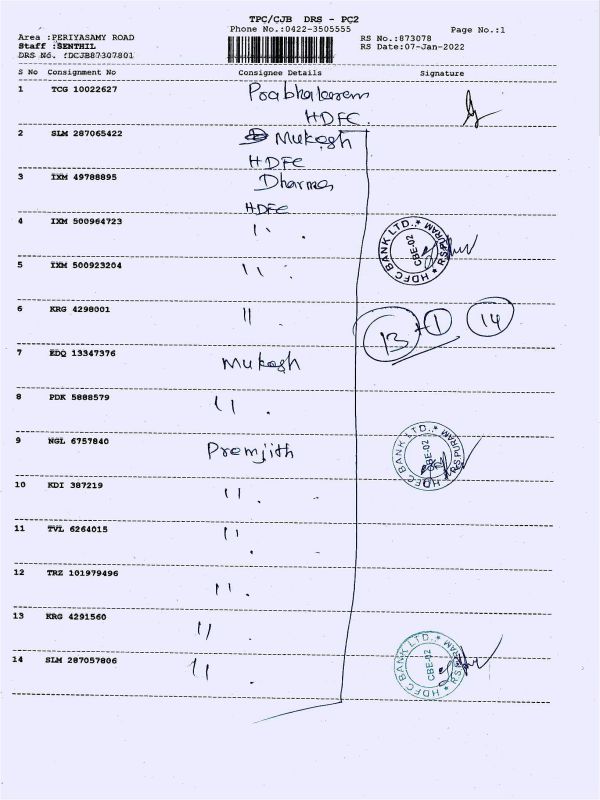 TPC/CJB DRS - PC2
Phone No.:0422-3505555 Page No.:1
Area :PERIYASAMY ROAD RS No.:873078
Staff :SENTHIL RS Date:07-Jan-2022
DRS No. :DCJB87307801
S No Consignment No Consignee Details Signature
1 TCG 10022627 Prabhakaran
HDFC
2 SLM 287065422 Mukesh
HDFC
3 IXM 49788895 Dharma
HDFC
4 IXM 500964723 "
HDFC BANK LTD., * R S PURAM * CBE-02
5 IXM 500923204 "
6 KRG 4298001 "
13 +1 14
7 EDQ 13347376 Mukesh
8 PDK 5888579 "
9 NGL 6757840 Premjith
HDFC BANK LTD., * R S PURAM * CBE-02
10 KDI 387219 "
11 TVL 6264015 "
12 TRZ 101979496 "
13 KRG 4291560 "
14 SLM 287057806 "
HDFC BANK LTD., * R S PURAM * CBE-02